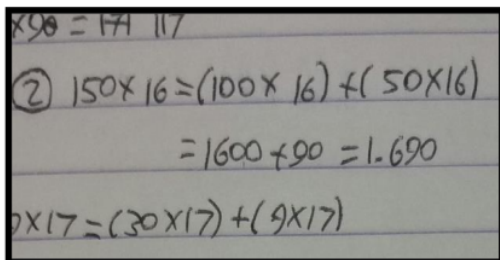 ×90 = 171 117
② 150 × 16 = (100 × 16) + (50 × 16)
= 1600 + 90 = 1.690
×17 = (30 × 17) + (9 × 17)